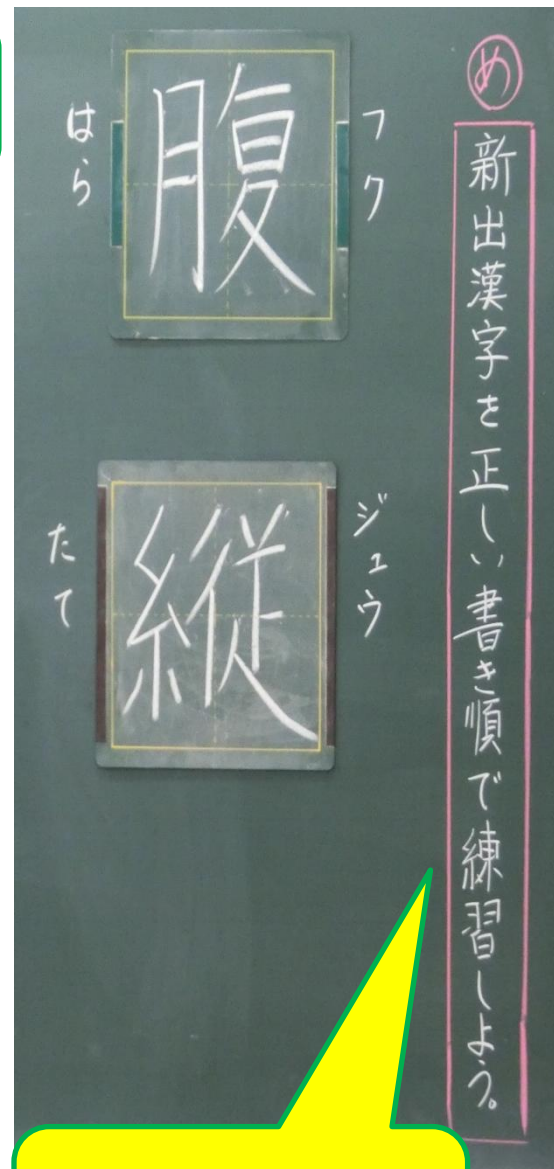 め
新出漢字を正しい書き順で練習しよう。
フク
腹
はら
ジュウ
縦
たて